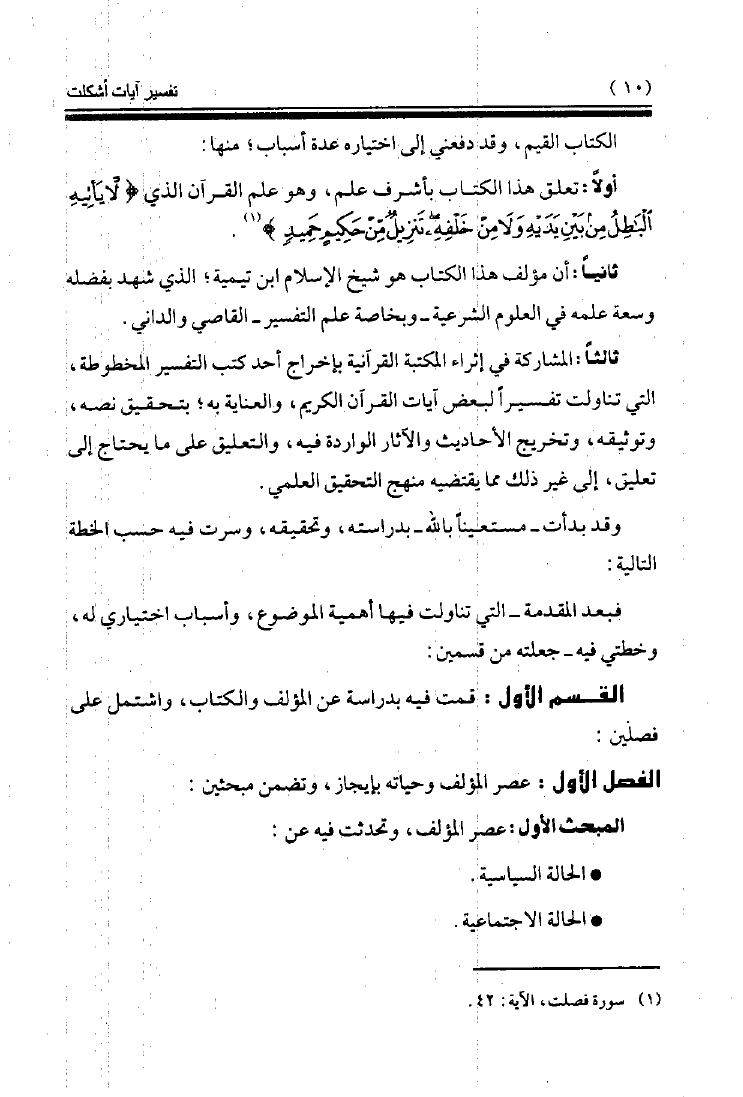 (١٠) تفسير آيات أشكلت
الكتاب القيم، وقد دفعني إلى اختياره عدة أسباب؛ منها:
أولاً: تعلق هذا الكتاب بأشرف علم، وهو علم القرآن الذي ﴿ لَّا يَأْتِيهِ
ٱلْبَٰطِلُ مِنۢ بَيْنِ يَدَيْهِ وَلَا مِنْ خَلْفِهِۦ ۖ تَنزِيلٌ مِّنْ حَكِيمٍ حَمِيدٍ ﴾(١).
ثانياً: أن مؤلف هذا الكتاب هو شيخ الإسلام ابن تيمية؛ الذي شهد بفضله
وسعة علمه في العلوم الشرعية ـ وبخاصة علم التفسير ـ القاصي والداني.
ثالثاً: المشاركة في إثراء المكتبة القرآنية بإخراج أحد كتب التفسير المخطوطة،
التي تناولت تفسيراً لبعض آيات القرآن الكريم، والعناية به؛ بتحقيق نصه،
وتوثيقه، وتخريج الأحاديث والآثار الواردة فيه، والتعليق على ما يحتاج إلى
تعليق، إلى غير ذلك مما يقتضيه منهج التحقيق العلمي.
وقد بدأت ـ مستعيناً بالله ـ بدراسته، وتحقيقه، وسرت فيه حسب الخطة
التالية:
فبعد المقدمة ـ التي تناولت فيها أهمية الموضوع، وأسباب اختياري له،
وخطتي فيه ـ جعلته من قسمين:
القسم الأول: قمت فيه بدراسة عن المؤلف والكتاب، واشتمل على
فصلين:
الفصل الأول: عصر المؤلف وحياته بإيجاز، وتضمن مبحثين:
المبحث الأول: عصر المؤلف، وتحدثت فيه عن:
● الحالة السياسية.
● الحالة الاجتماعية.
(١) سورة فصلت، الآية: ٤٢.